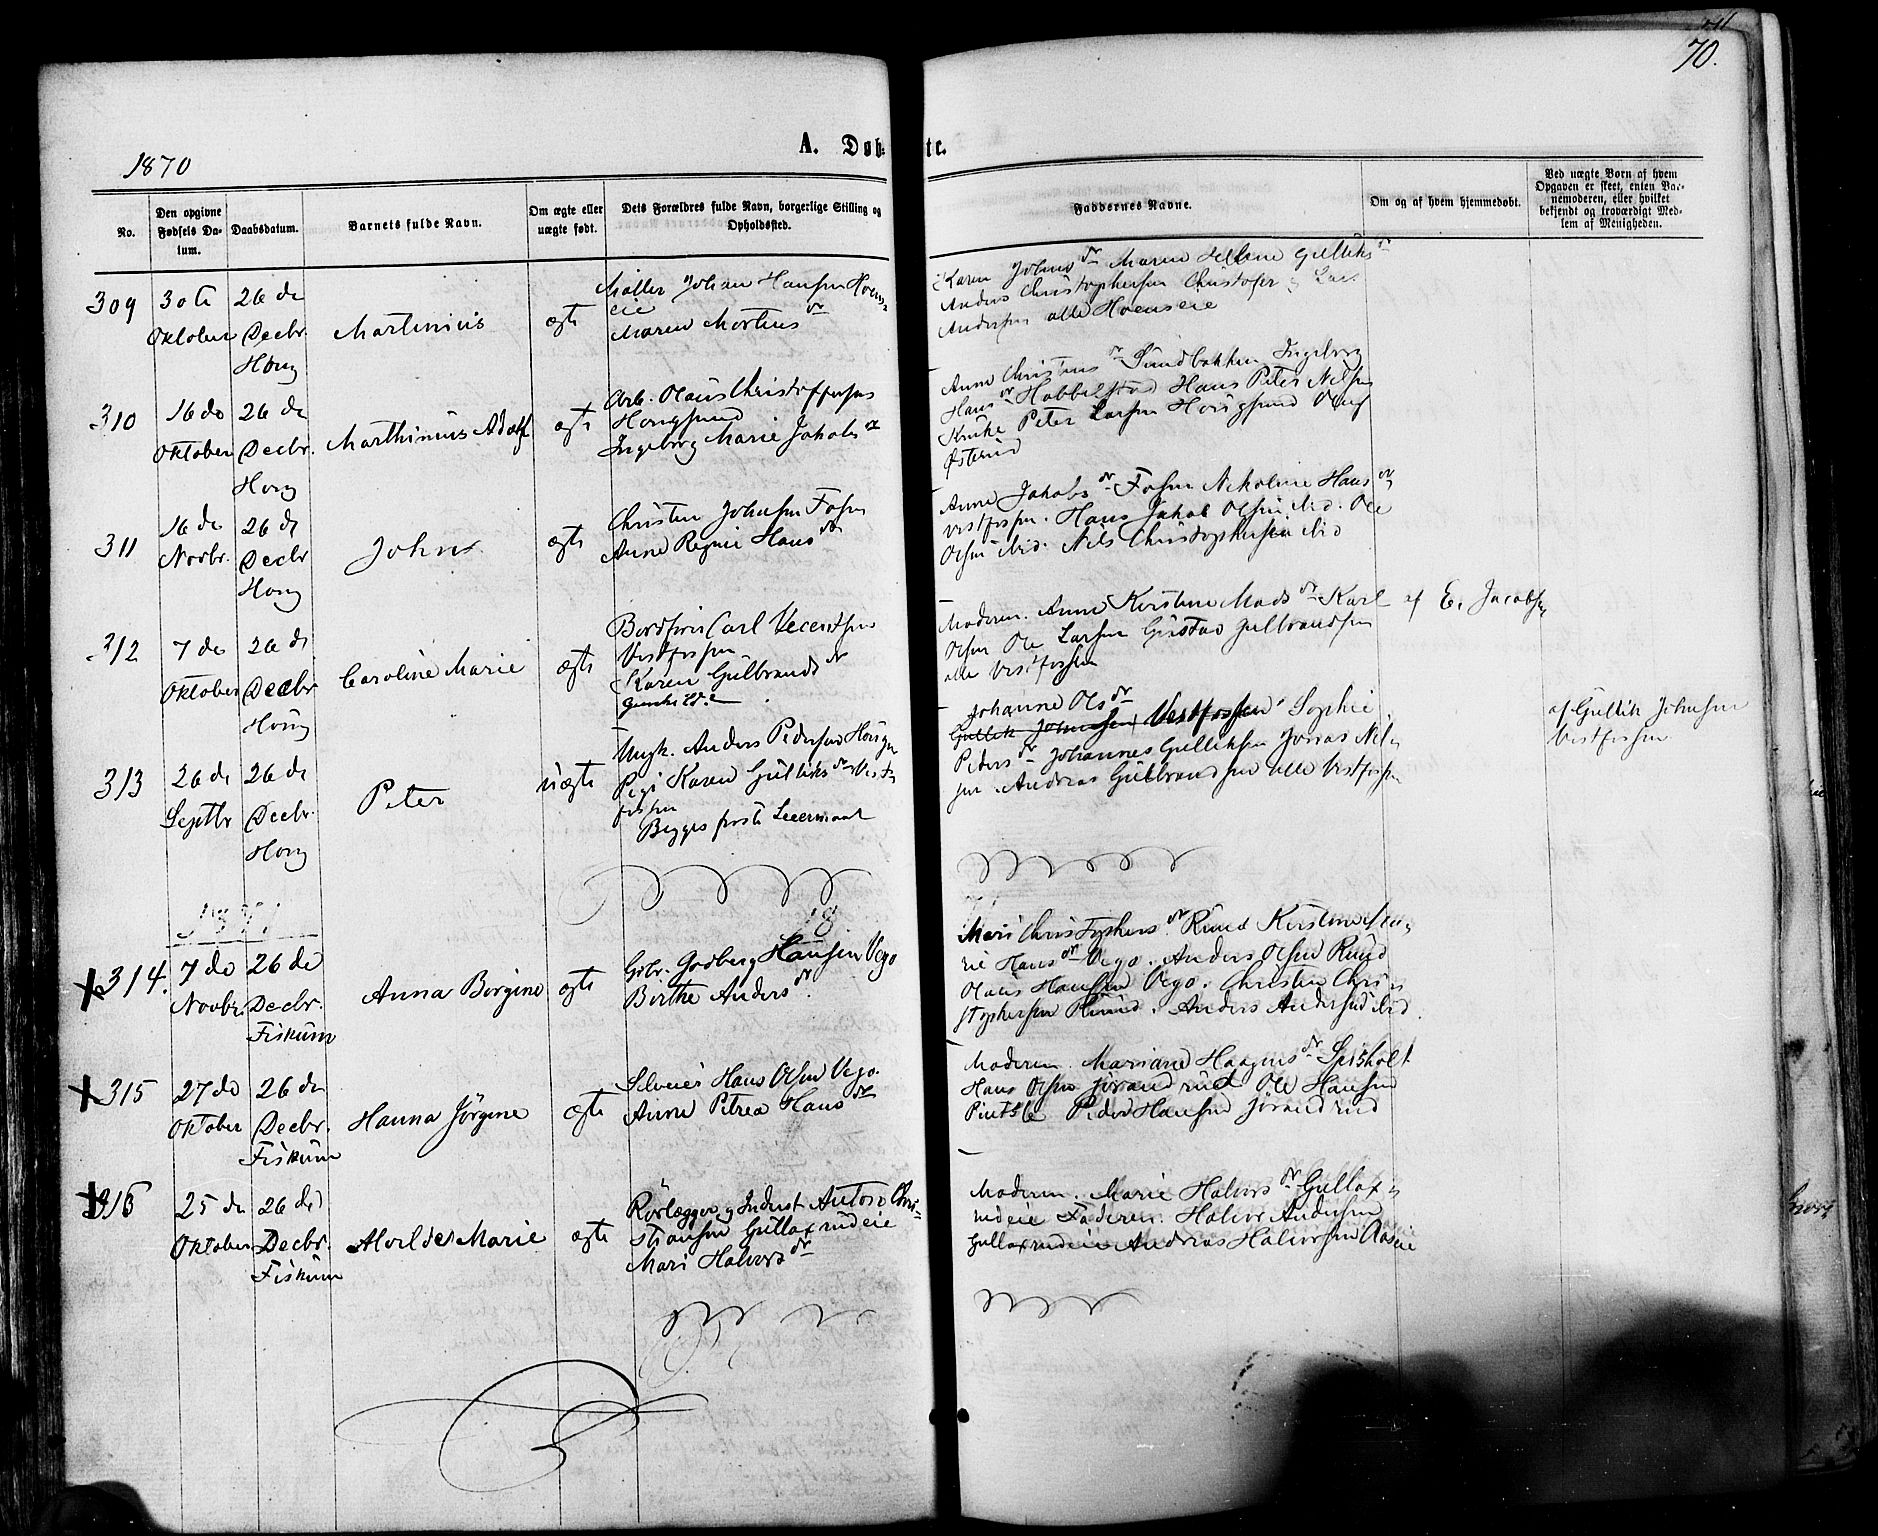 71
70.
1870
A. Døbte.
No.
Den opgivne Fødsels Datum.
Daabsdatum.
Barnets fulde Navn.
Om ægte eller uægte født.
Dets Forældres fulde Navn, borgerlige Stilling og Opholdssted.
Faddernes Navne.
Om og af hvem hjemmedøbt.
Ved uægte Born af hvem Opgaven er skeet, enten Barnemoderen, eller hvilket bekjendt og troværdigt Medlem af Menigheden.
309
30te Oktober
26de Decbr. Houg
Martinius
ægte
Møller Johan Hansen Hoens=
eie
Maren Mortens dr
Karen Johns dr Maren Hellene Gulliks dr
Anders Christophersen Christofer
Andersen alle Hoenseie
310
16de Oktober
26de Decbr. Houg
Marthinius Adolf
ægt
Arb. Olaus Christoffersen
Hougsund
Ingeborg Marie Jakobs dr
Anne Christens dr Sundbakken Ingeborg
Hans dr Hobbelstad Hans Peter Nilsen
Kruke Peter Larsen Hougsund Oluf
Østerud
311
16de Novbr.
26de Decbr Houg
John
ægte
Christen Johnsen Fosen
Anne Regine Hans dr
Anne Jakobs dr Fosen Nikoline Hans dr
Vestfossen. Hans Jakob Olsen ibid. Ole
Olsen ibid. Nils Christophersen ibid
312
7de Oktober
26de Decbr Houg
Caroline Marie
ægte
Carl Vecentsen
Vestfossen
Karen Gulbrands dr
Moderen. Anne Kirstine Mads dr Karl
Olsen Ole Larsen Gustav Gulbrandsen
alle Vestfossen
af E. Jacobsen
313
26de Septbr
26de Decbr. Houg
Peter
uægte
Ungk. Anders Pedersen Houg
Pige Karen Gulliks dr Vest=
fossen
Begges første Leiermaal
Johanne Ols dr
Gullik Johnsen Vestfossen Sophie
Peders dr Johannes Gulliksen Jonas Nil=
sen. Andreas Gulbrandsen alle Vestfossen
af Gullik Johnsen
Vestfossen
1871
18
71
314.
7de Novbr.
26de Decbr. Fiskum
Anna Borgine
ægte
Gbr. Godberg Hansen Vego
Birthe Anders dr.
Mari Christophers dr. Ruud Kirstine Ma=
rie Hans dr Vego. Anders Olsen Ruud
Olaus Hansen Vego. Christen Chri=
stophersen Ruud. Anders Andersen ibid.
315
27de Oktober
26de Decbr. Fiskum
Hanna Jørgine
ægte
Selveier Hans Olsen Vego.
Anne Petrea Hans dr
Moderen. Mariane Haagens dr
Hans Olsen Jørandrud Ole Hansen
Peder Hansen Jørandrud
316
25de Oktober
26de Decbr. Fiskum
Marie
ægte
Rørlægger og Inderst Anton Chri=
stiansen Gullaxrudeie
Mari Halvors dr
Moderen. Marie Halvors dr Gullax=
rudeie Faderen. Halvor Andersen
Gullaxrudeie Andreas Halvorsen Aaseie